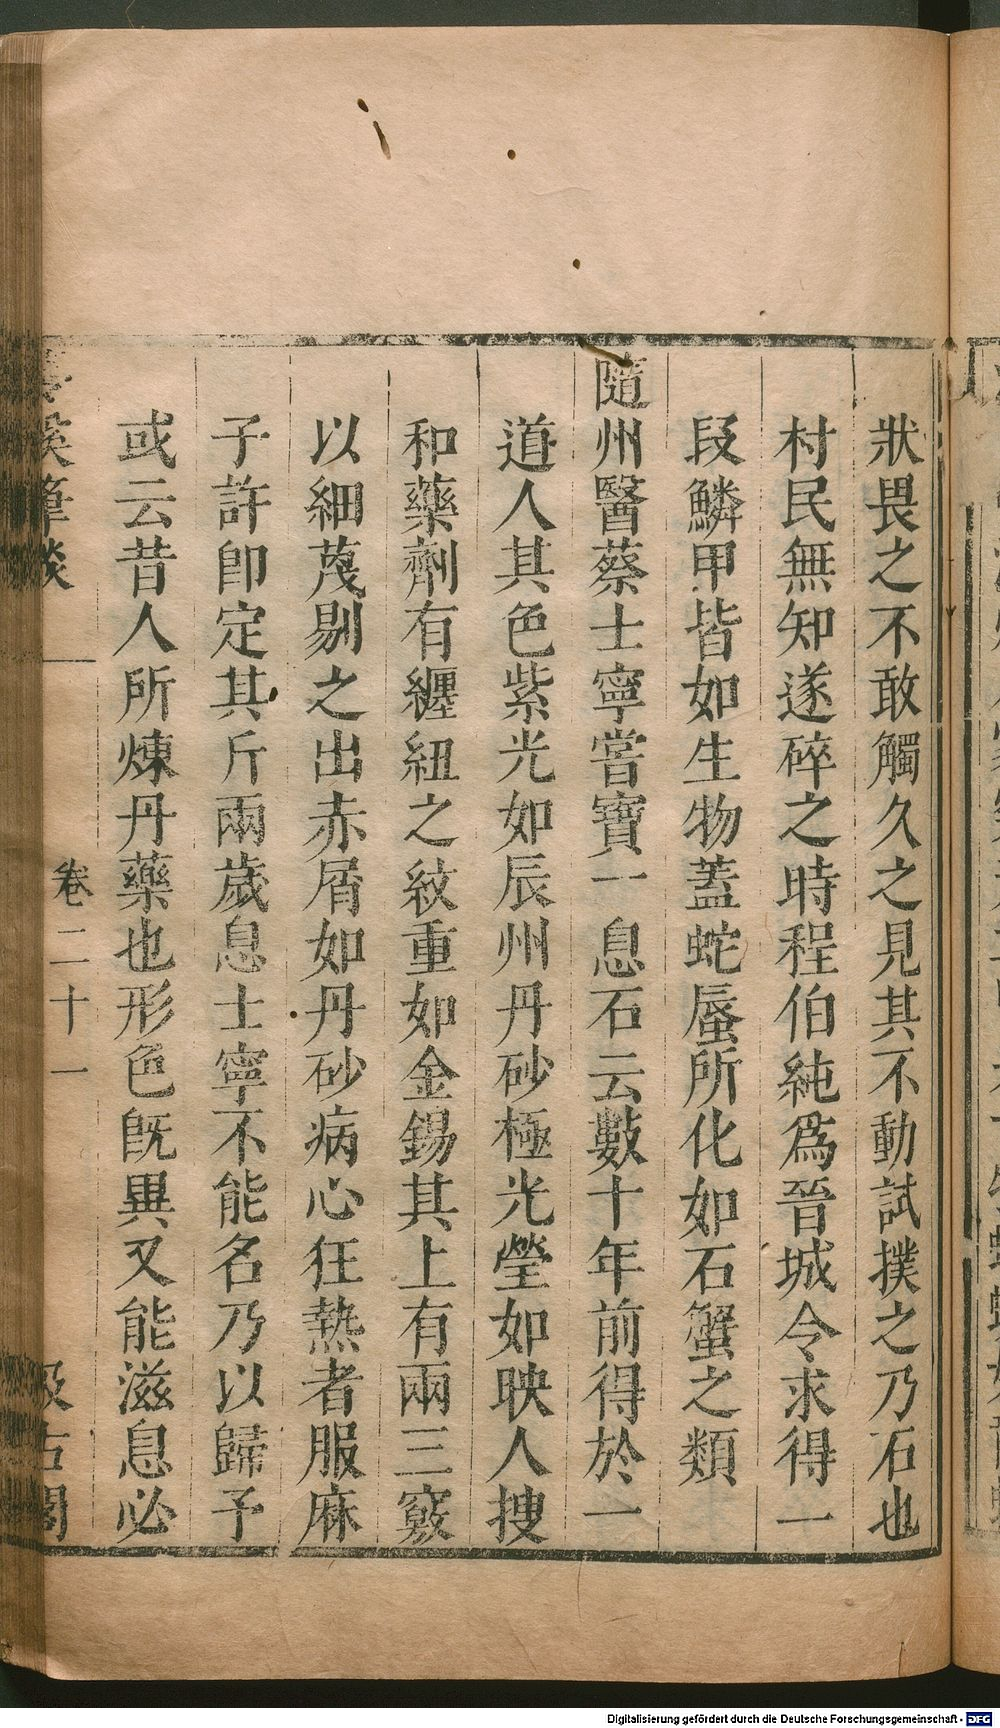 狀畏之不敢觸久之見其不動試撲之乃石也
村民無知遂碎之時程伯純爲晉城令求得一
段鱗甲皆如生物蓋蛇蜃所化如石蟹之類
隨州醫蔡士寧嘗寶一息石云數十年前得於一
道人其色紫光如辰州丹砂極光瑩如映人搜
和藥劑有纏紐之紋重如金錫其上有兩三竅
以細蔑剔之出赤屑如丹砂病心狂熱者服麻
子許卽定其斤兩歲息士寧不能名乃以歸予
或云昔人所煉丹藥也形色旣異又能滋息必
溪筆談 卷二十一 汲古閣
Digitalisierung gefördert durch die Deutsche Forschungsgemeinschaft - DFG